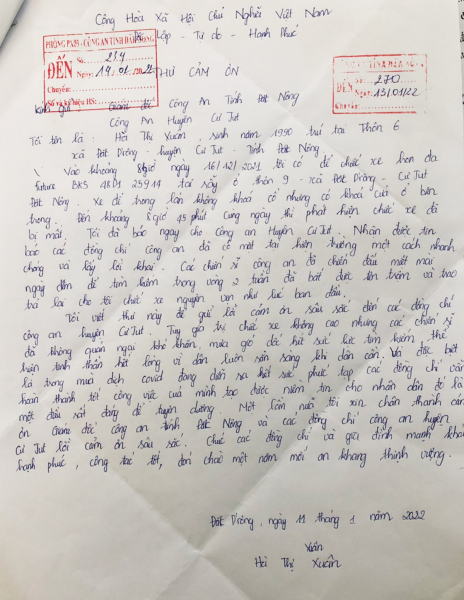 Cộng Hoà Xã Hội Chủ Nghĩa Việt Nam
Độc Lập - Tự do - Hạnh Phúc
PHÒNG PX03 - CÔNG AN TỈNH ĐẮK NÔNG
ĐẾN Số: 234
Ngày: 14/01/2022
Chuyển:
Số và ký hiệu HS:
CÔNG AN TỈNH ĐẮK NÔNG
ĐẾN Số: 270
Ngày: 13/01/22
Chuyển:
THƯ CẢM ƠN
Kính gửi : Giám đốc Công An Tỉnh Đắk Nông
Công An Huyện Cư Jut
Tôi tên là : Hồi Thị Xuân , sinh năm 1990 trú tại Thôn 6
xã Đắk D'rông - huyện Cư Jut - Tỉnh Đắk Nông
Vào khoảng 8giờ ngày 16/12/2021 tôi có để chiếc xe hon da
future BKS 48D1 25914 tại rẫy ở thôn 9 - xã Đắk D'rông - Cư Jut
Đắk Nông. Xe để trong lán không khoá cổ nhưng có khoá cửa ở bên
trong. Đến khoảng 8giờ 45 phút cùng ngày thì phát hiện chiếc xe đã
bị mất. Tôi đã báo ngay cho công an Huyện Cư Jut. Nhận được tin
báo các đồng chí công an đã có mặt tại hiện trường một cách nhanh
chóng và lấy lời khai. Các chiến sĩ công an đã chiến đấu miệt mài
ngày đêm để tìm kiếm trong vòng 2 tuần đã bắt được tên trộm và trao
trả lại cho tôi chiếc xe nguyên vẹn như lúc ban đầu.
Tôi viết thư này để gửi lời cảm ơn sâu sắc đến các đồng chí
công an huyện Cư Jut. Tuy giá trị chiếc xe không cao nhưng các chiến sĩ
đã không quản ngại khó khăn, mưa gió để hết sức lực tìm kiếm, thể
hiện tinh thần hết lòng vì dân luôn sẵn sàng khi dân cần. Và đặc biệt
là trong mùa dịch covid đang diễn ra hết sức phức tạp các đồng chí vẫn
hoàn thành tốt công việc của mình tạo được niềm tin cho nhân dân đó là
một điều rất đáng để tuyên dương. Một lần nữa tôi xin chân thành cảm
ơn Giám đốc công an tỉnh Đắk Nông và các đồng chí công an huyện
Cư Jut lời cảm ơn sâu sắc. Chúc các đồng chí và gia đình mạnh khoẻ
hạnh phúc , công tác tốt, đón chào một năm mới an khang thịnh vượng.
Đắk D'rông, ngày 11 tháng 1 năm 2022
Xuân
Hồi Thị Xuân